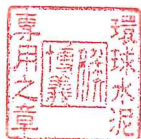 環球水泥
博義
專用之章